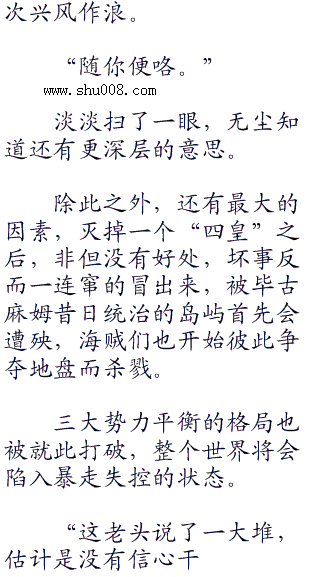 次兴风作浪。
“随你便咯。”
www.shu008.com
淡淡扫了一眼，无尘知
道还有更深层的意思。
除此之外，还有最大的
因素，灭掉一个“四皇”之
后，非但没有好处，坏事反
而一连窜的冒出来，被毕古
麻姆昔日统治的岛屿首先会
遭殃，海贼们也开始彼此争
夺地盘而杀戮。
三大势力平衡的格局也
被就此打破，整个世界将会
陷入暴走失控的状态。
“这老头说了一大堆，
估计是没有信心干